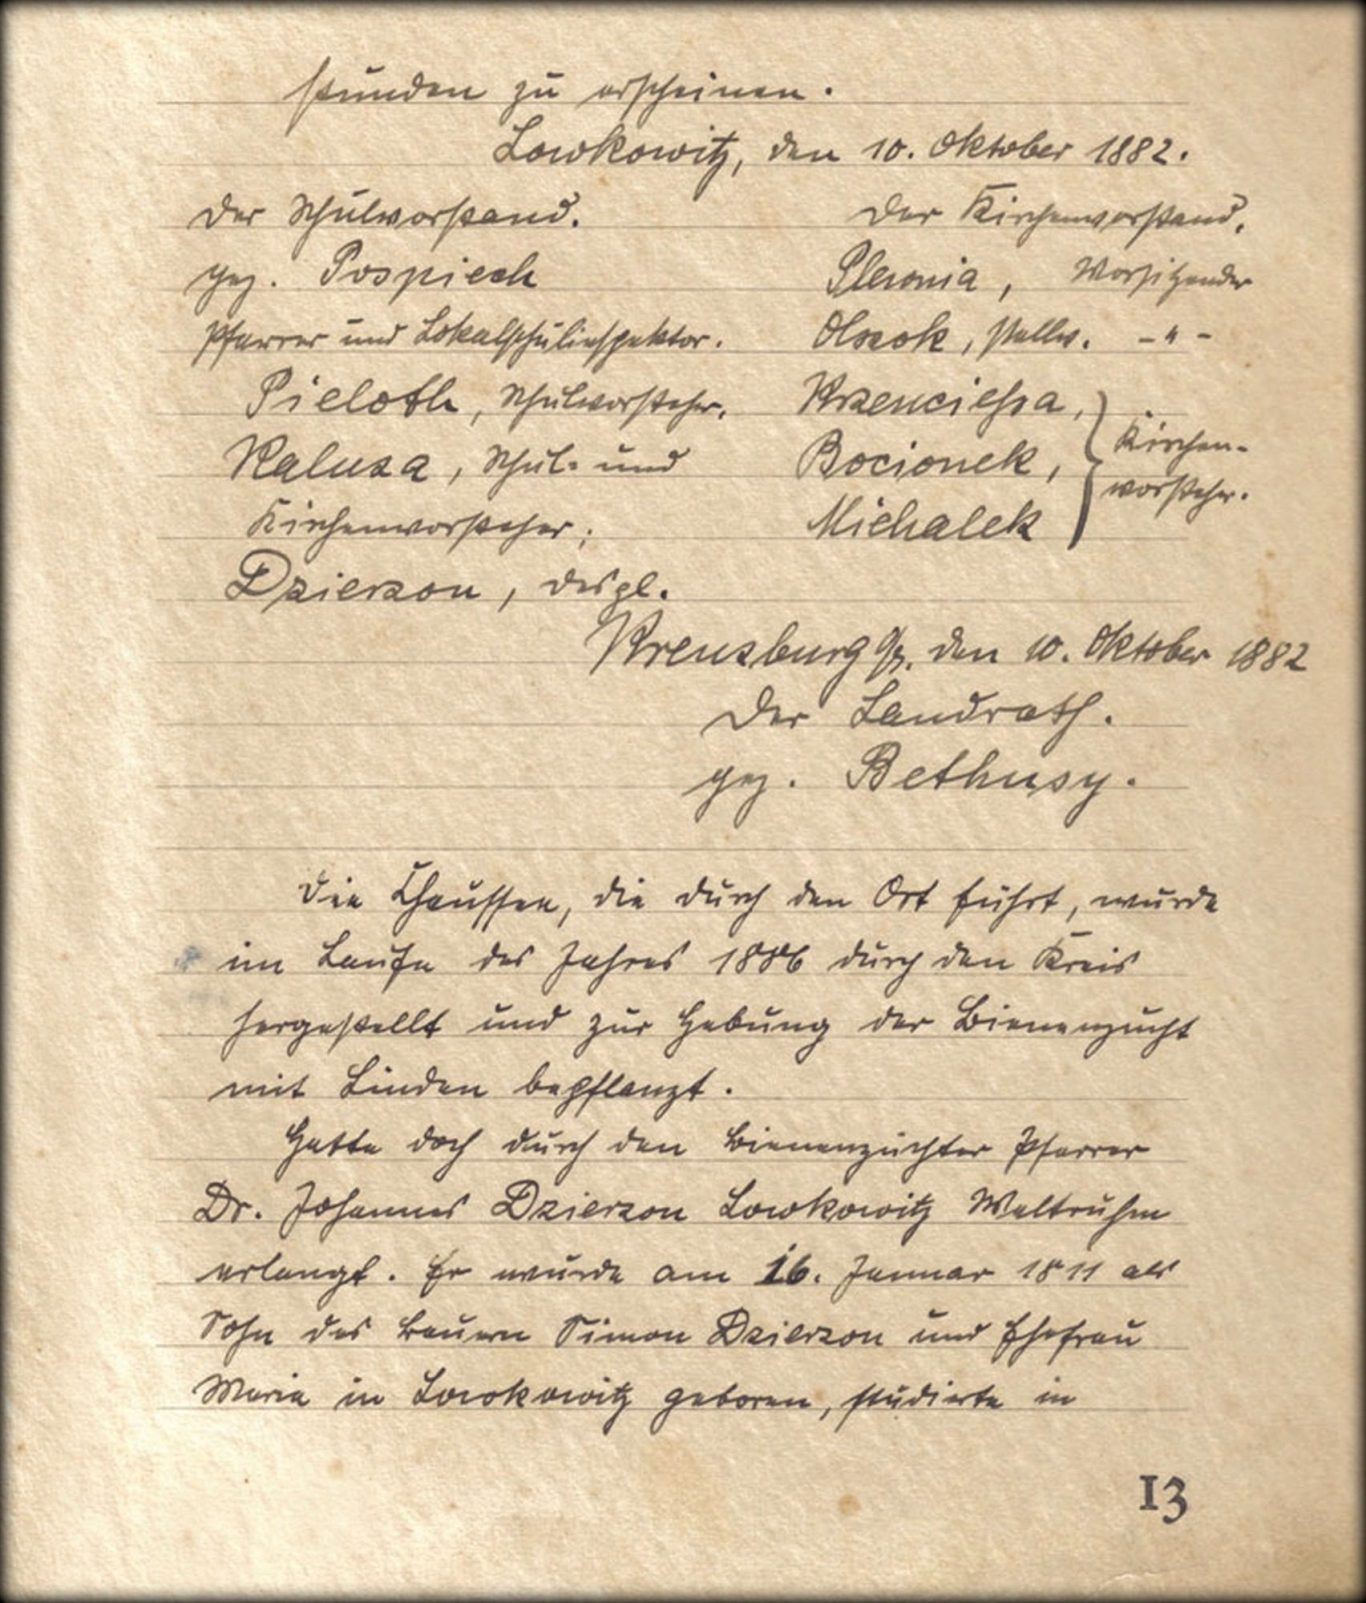 stunden zu erscheinen.
Lowkowitz, den 10. Oktober 1882.
Der Schulvorstand. Der Kirchenvorstand.
gez. Pospiech Pleronia, Vorsitzender
Pfarrer und Lokalschulinspektor. Olszok, stellv. - " -
Pieloth, Schulvorsteher. Krzenciessa,
Kalusa, Schul- und Bocionek, Kirchen-
Kirchenvorsteher; Michalek vorsteher.
Dzierzon, desgl.
Kreuzburg den 10. Oktober 1882
Der Landrath.
gez. Bethusy.
Die Chaussee, die durch den Ort führt, wurde
im Laufe des Jahres 1886 durch den Kreis
hergestellt und zur Hebung der Bienenzucht
mit Linden bepflanzt.
Hatte doch durch den Bienenzüchter Pfarrer
Dr. Johannes Dzierzon Lowkowitz Weltruhm
erlangt. Er wurde am 16. Januar 1811 als
Sohn des Bauern Simon Dzierzon und Ehefrau
Maria in Lowkowitz geboren, studierte in
13